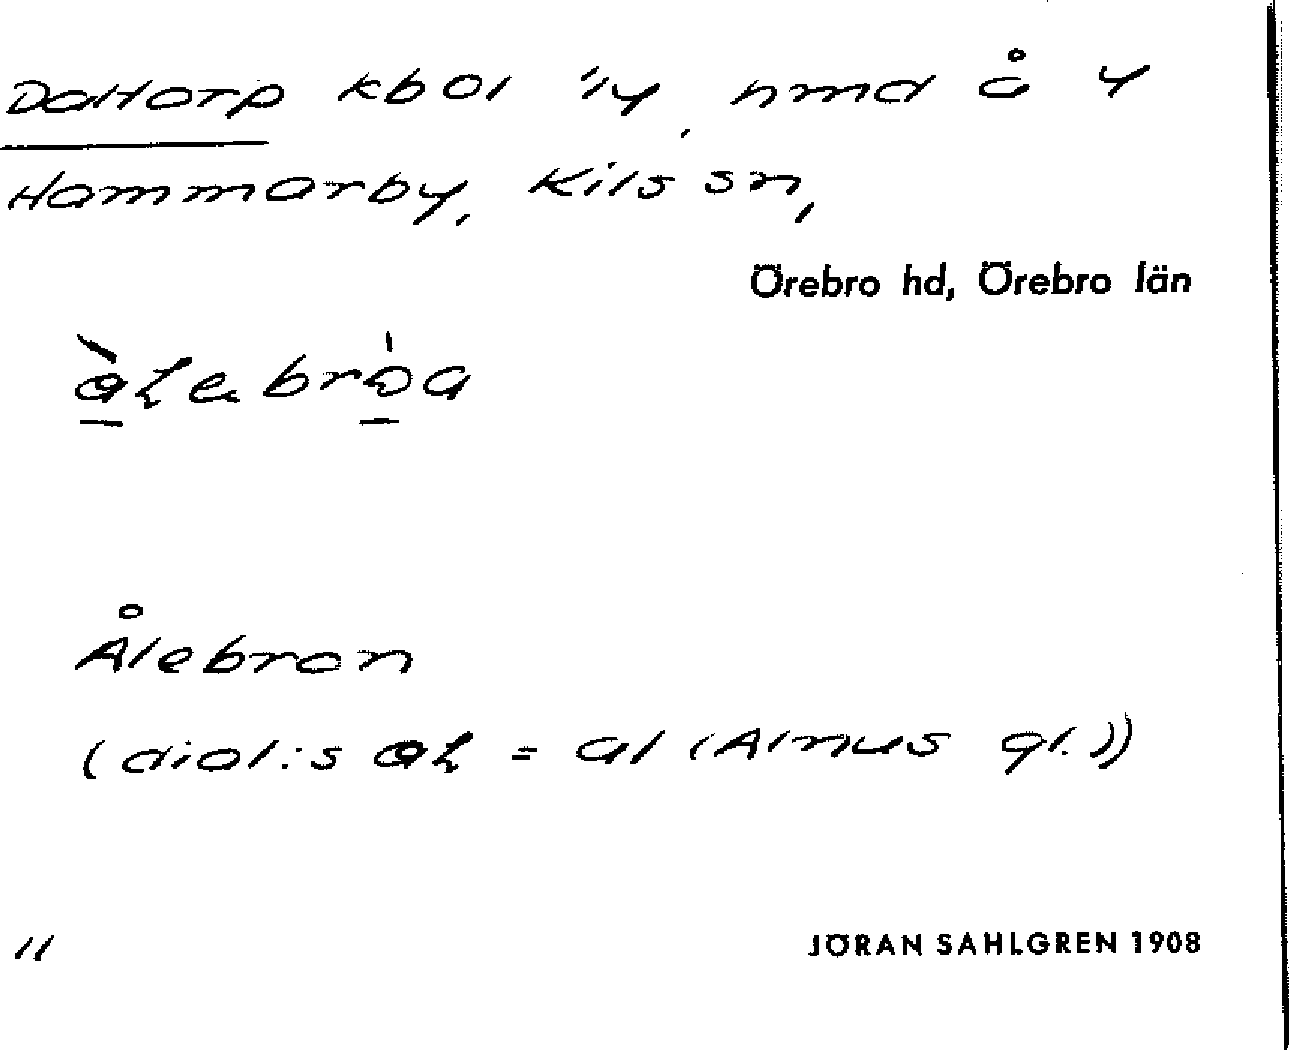 Daltorp kbol 1/4, hmd å 4
Hammarby, Kils sn,
Örebro hd, Örebro län
Ålebron
(dial:s aɫ = al (Alnus gl.))
11
JÖRAN SAHLGREN 1908